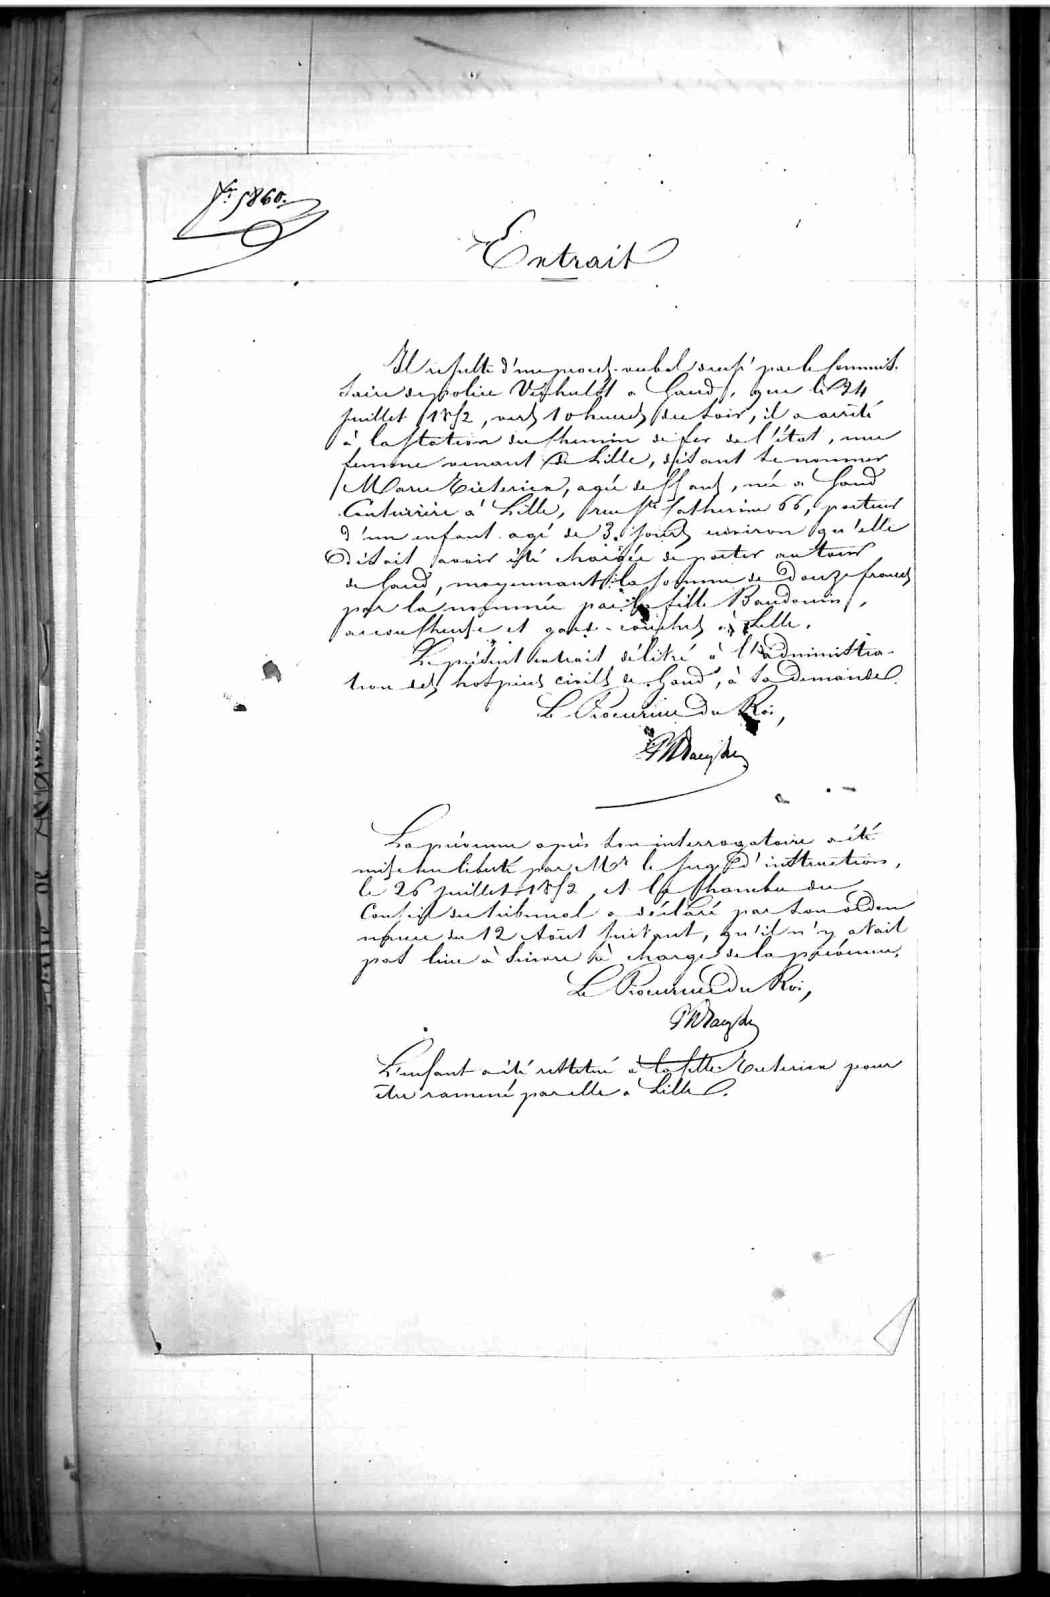 Nr. 5860.
Extrait
Il resulte d'un procès-verbal dressé par le Commis-
saire de police Verhulst à Gand, que le 24
juillet 1852, vers 10 heures du soir, il a arrêté
à la station du chemin de fer de l'état, une
femme venant de Lille, disant se nommer
Marie Tieterien, agée de ans, née à Gand
Couturière à Lille, rue Ste Catherine 66, porteur
d'un enfant agé de 3 jours environ qu'elle
disait avoir été chargée de porter au tour
de Gand, moyennant la somme de douze francs
par la nommée fille Baudouin,
accoucheuse et garde-couches à Lille.
Le présent extrait délivré à l'administra-
tion des hospices civils de Gand, à sa demande.
Le Procureur du Roi,
La prévenue après son interrogatoire a été
mise en liberté par Mr le juge d'instruction,
le 26 juillet 1852, et la chambre du
Conseil du tribunal a déclaré par son ordon
nance du 12 Août suivant, qu'il n'y avait
pas lieu à suivre à charge de la prévenue.
Le Procureur du Roi,
L'enfant a été restitué à la fille Tieterien pour
être ramené par elle à Lille.